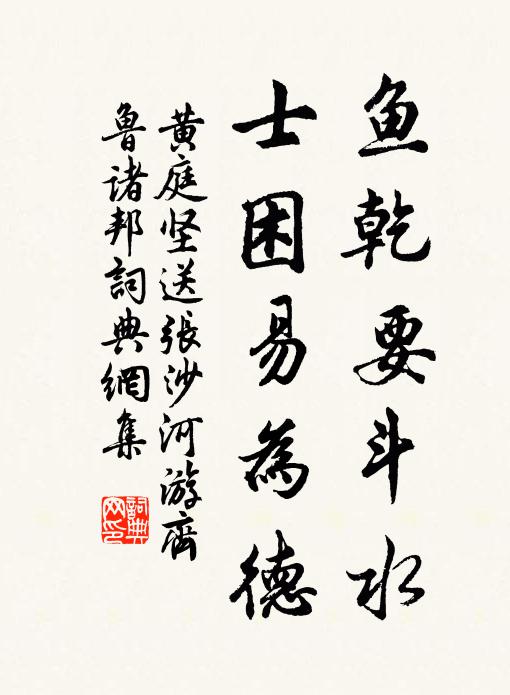 鱼乾要斗水
士困易為德
黄庭坚送張沙河游齊
魯诸邦詞典網集
詞典
网印